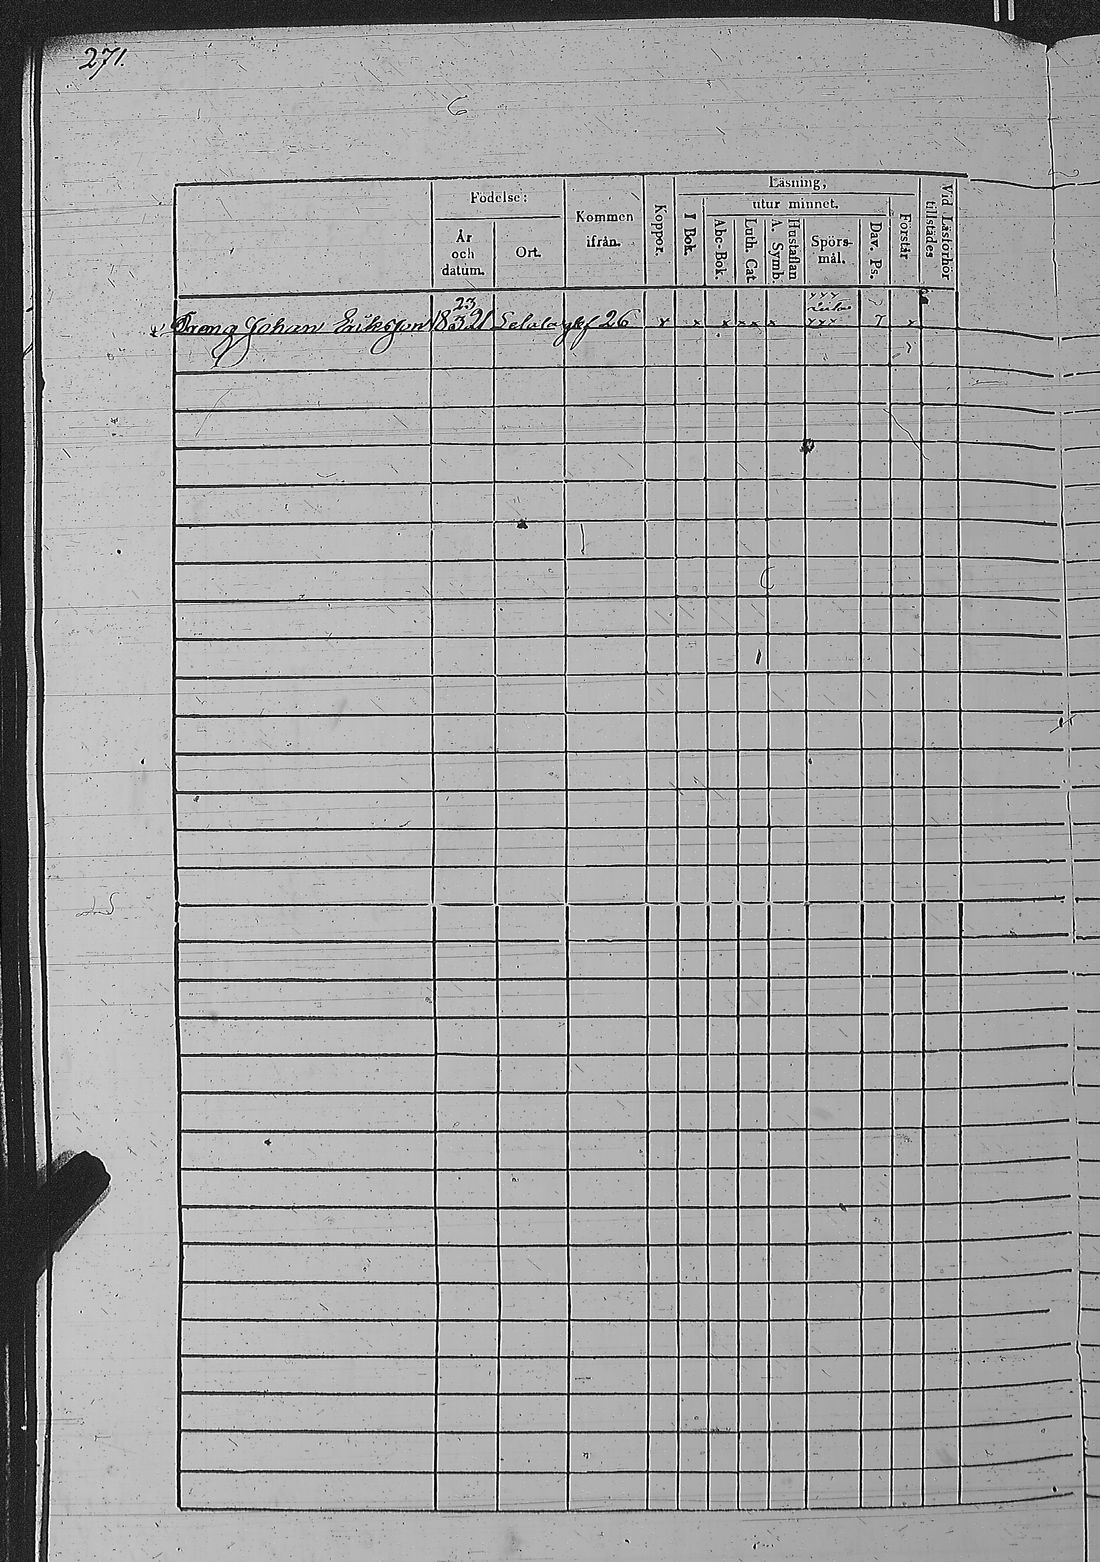 271.
Läsning,
Födelse:
utur minnet.
Kommen ifrån.
Koppor.
I Bok.
Abc-Bok.
Luth. Cat
A. Symb.
Hustaflan
Spörs-
mål.
Dav. Ps.
Förstår
Vid Läsförhör
tillstädes
År
och
datum.
Ort.
23
Dreng Johan Eriksson 18 3 21 26